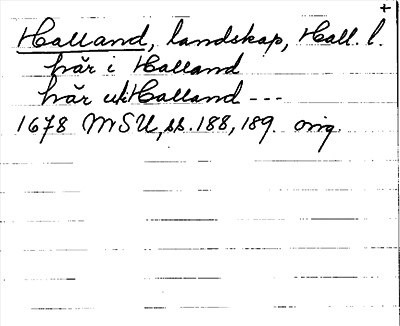 +
Halland, landskap, Hall. l.
här i Halland
här uti Halland ---
1678 MSU, ss. 188, 189. orig.